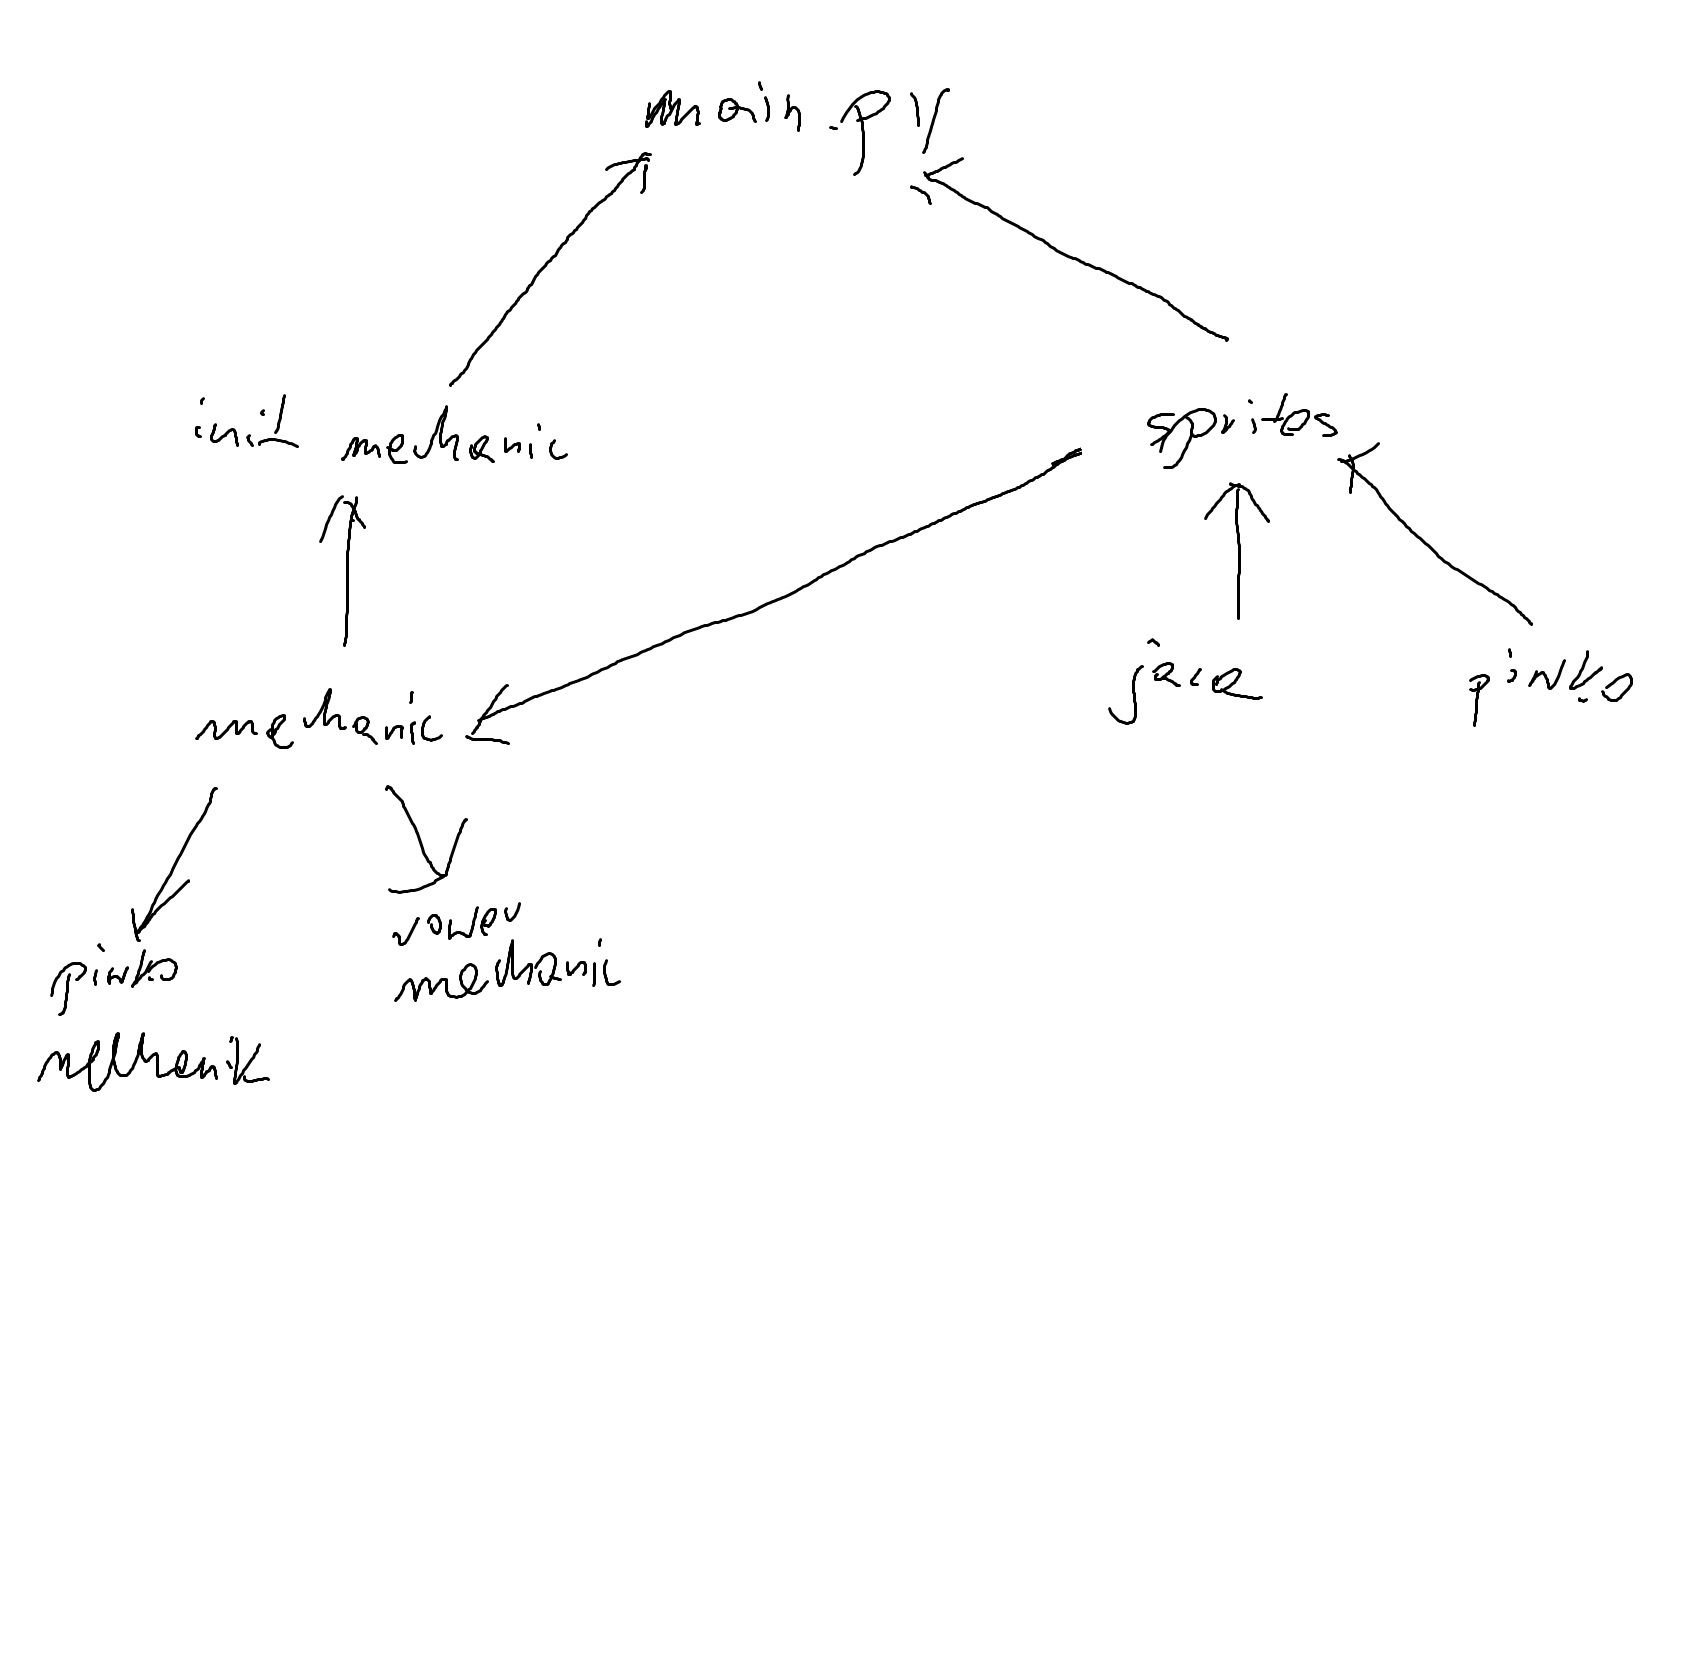 main.py
init mechanic
sprites
mechanic
jaca
pinko
pinko
mechanik
rower
mechanic